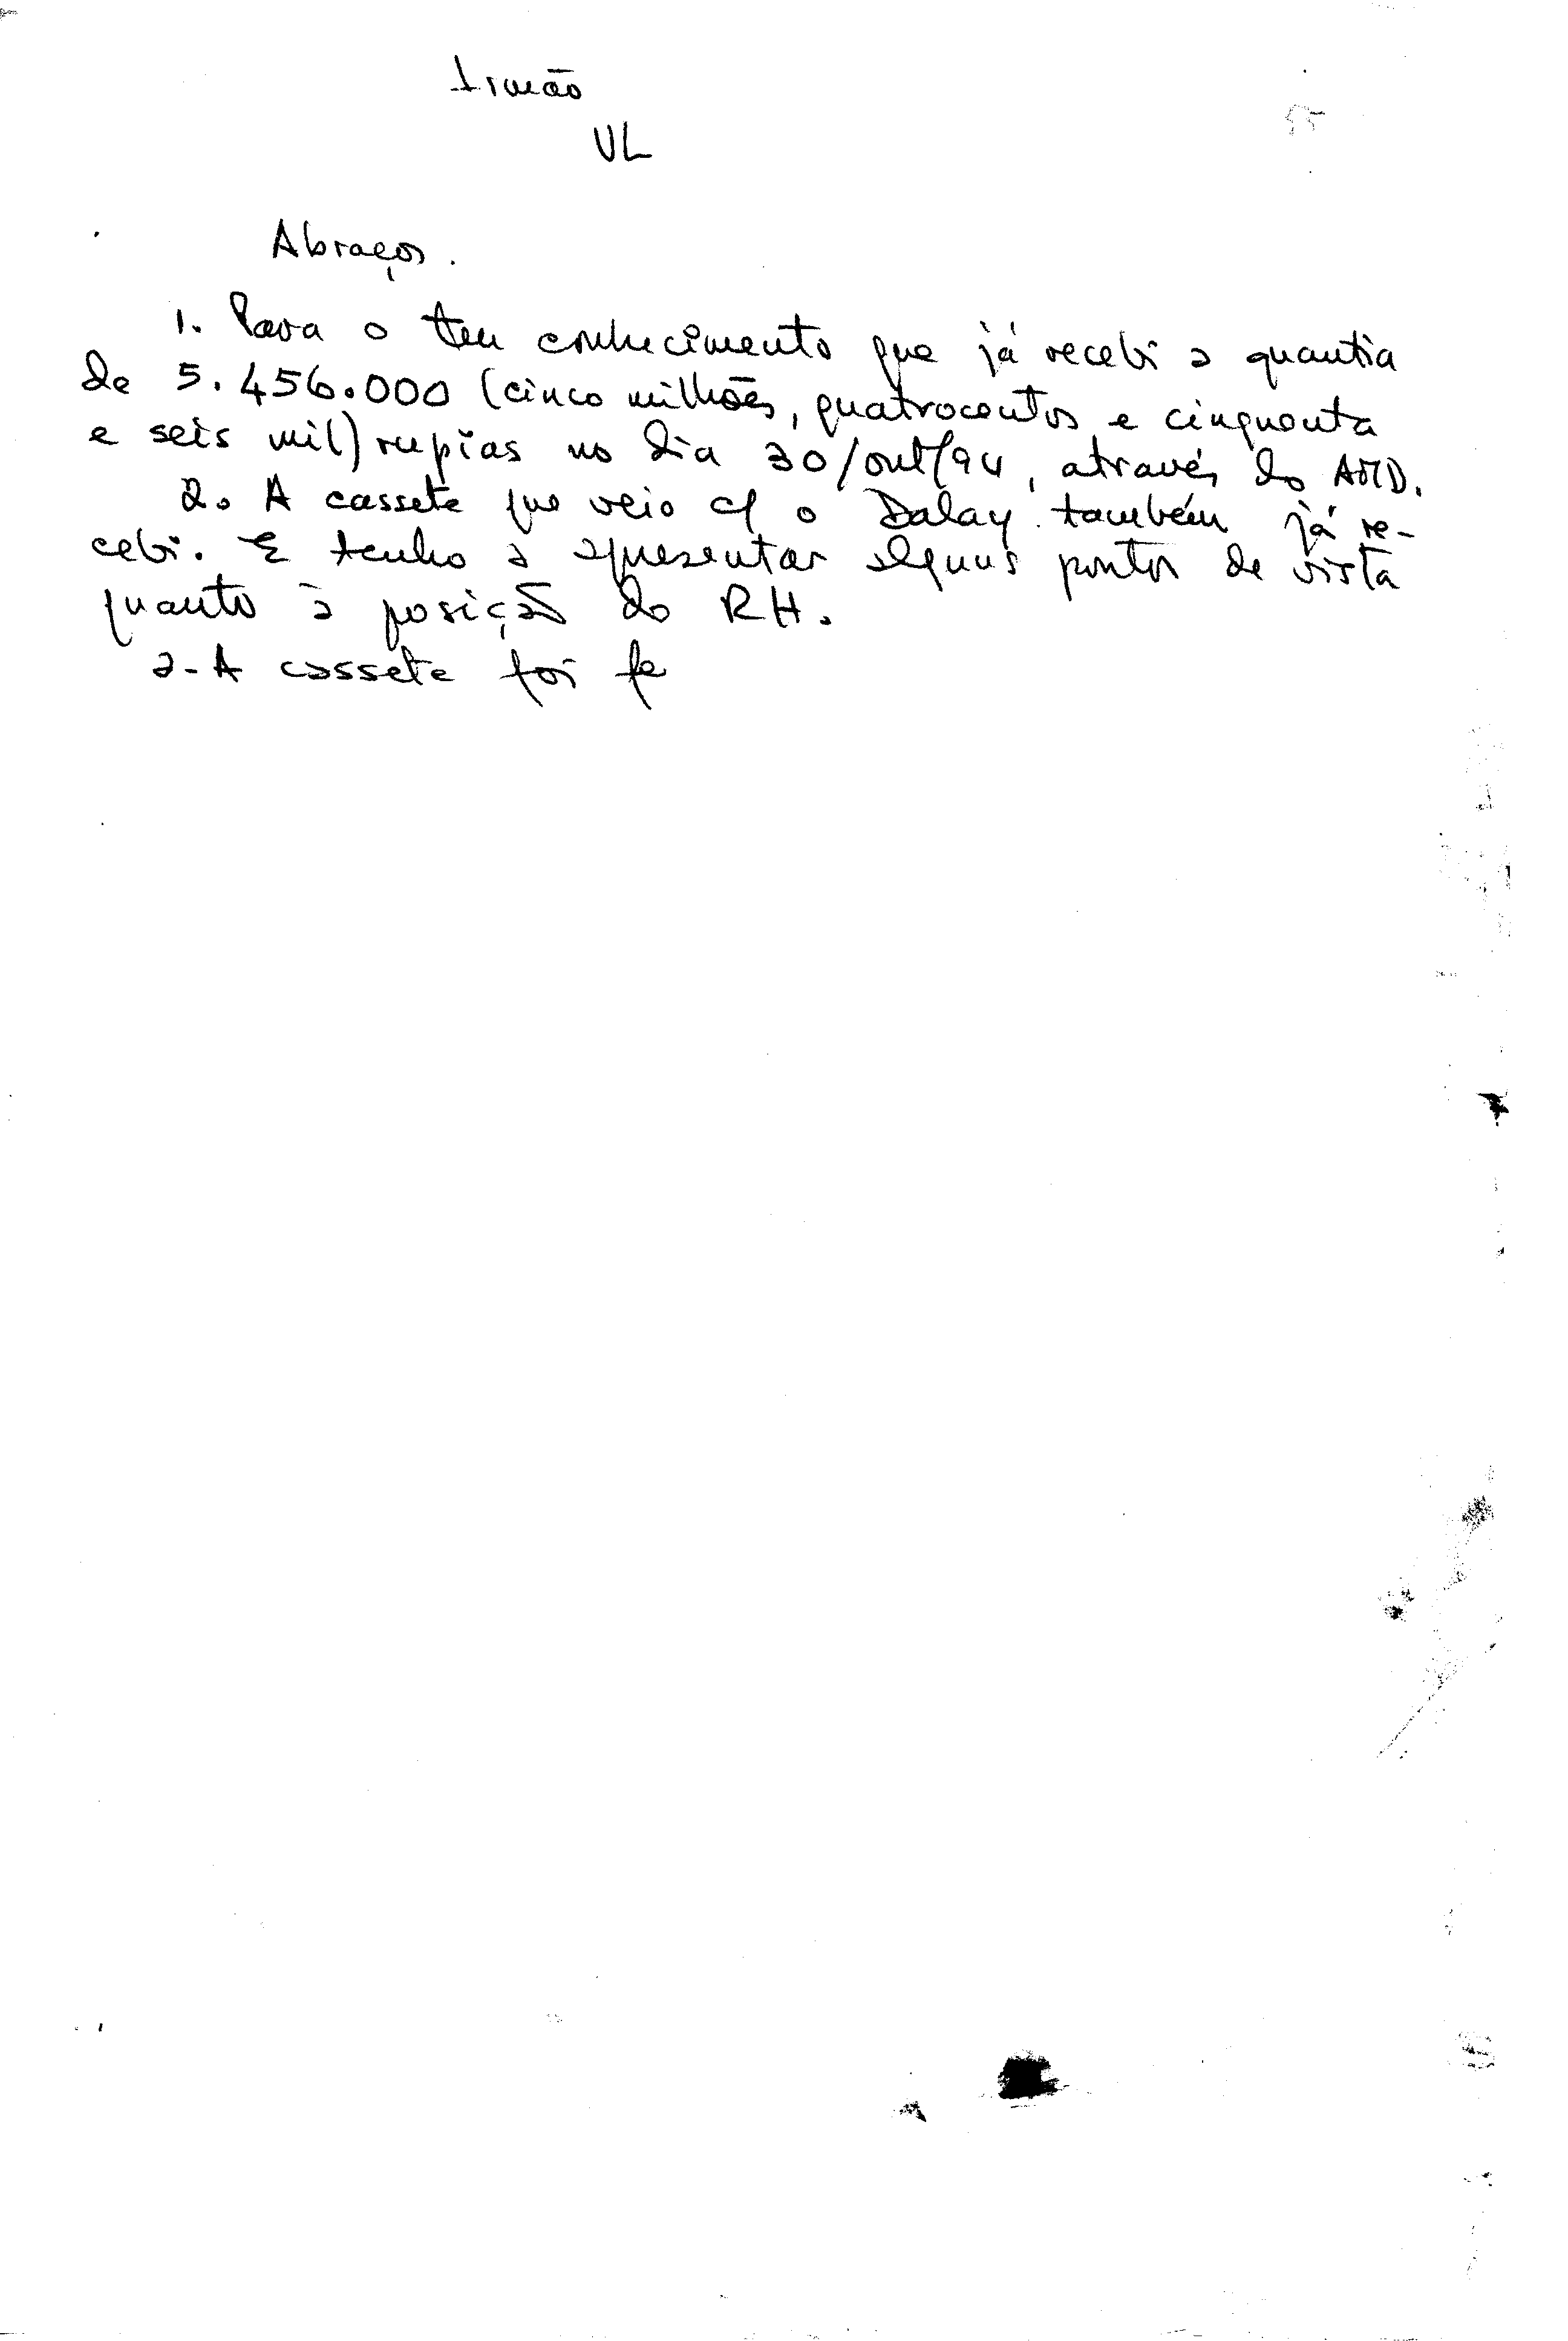 Irmão
UL
Abraços.
1. Para o teu conhecimento que já recebi a quantia
de 5.456.000 (cinco milhões, quatrocentos e cinquenta
e seis mil) rupias no dia 30/out/94, através do AMD.
2. A cassete que veio c/ o Dalay também já re-
cebi. E tenho a apresentar alguns pontos de vista
quanto à posição do RH.
a- A cassete foi fe